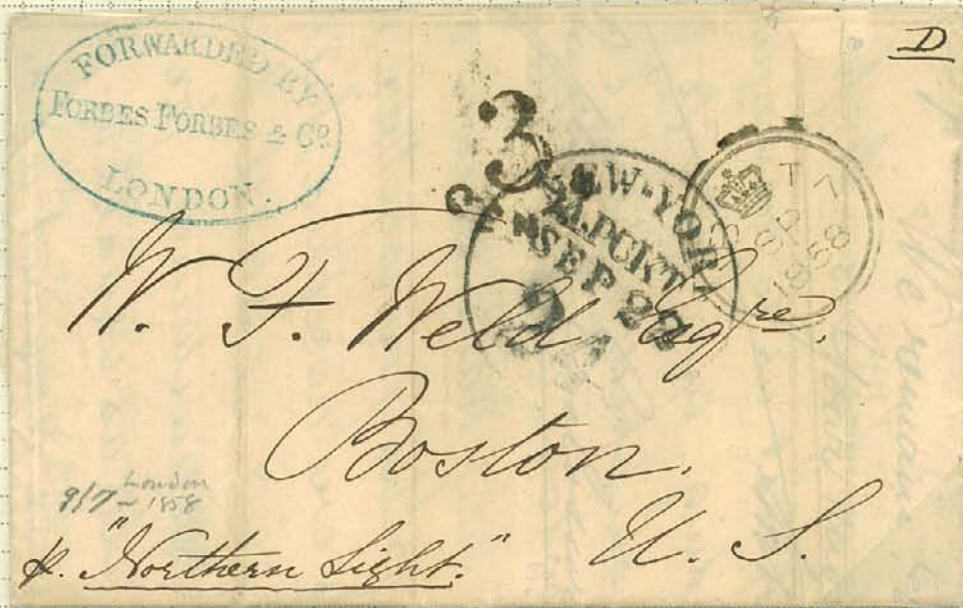 D
FORWARDED BY
FORBES FORBES & Co.
LONDON.
3
CENTS
NEW-YORK
AM. PCKT.
SEP 27
SP
1858
W. F. Weld Esqre.
Boston.
U. S.
London
9/7 - 1858
p. "Northern Light."